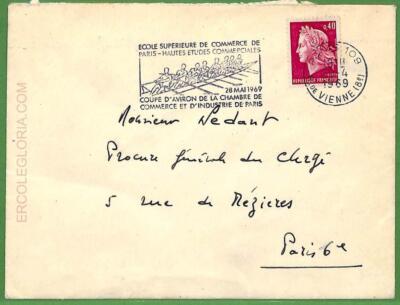 ECOLE SUPERIEURE DE COMMERCE DE
PARIS - HAUTES ETUDES COMMERCIALES
28 MAI 1969
COUPE D'AVIRON DE LA CHAMBRE DE
COMMERCE ET D'INDUSTRIE DE PARIS
0,40
REPUBLIQUE FRANCAISE
109
4
1969
DE VIENNE (8e)
Monsieur Pedant
Procure Générale du Clergé
5 rue de Mézières
Paris 6e
ERCOLEGLORIA.COM